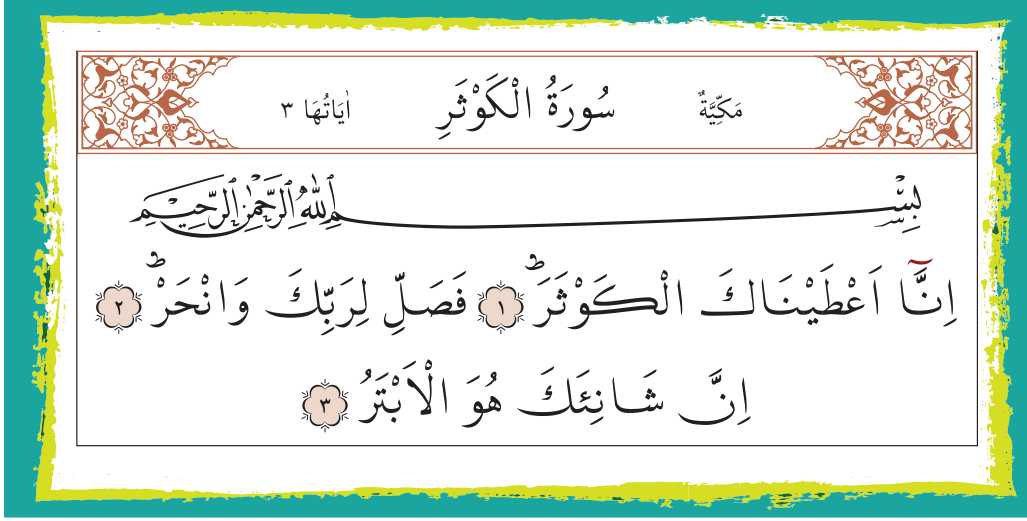 مَكِّيَّةٌ سُورَةُ الْكَوْثَرِ اٰيَاتُهَا ٣
بِسْمِ اللّٰهِ الرَّحْمٰنِ الرَّح۪يمِ
اِنَّٓا اَعْطَيْنَاكَ الْكَوْثَرَۜ ﴿١﴾ فَصَلِّ لِرَبِّكَ وَانْحَرْۜ ﴿٢﴾
اِنَّ شَانِئَكَ هُوَ الْاَبْتَرُ ﴿٣﴾